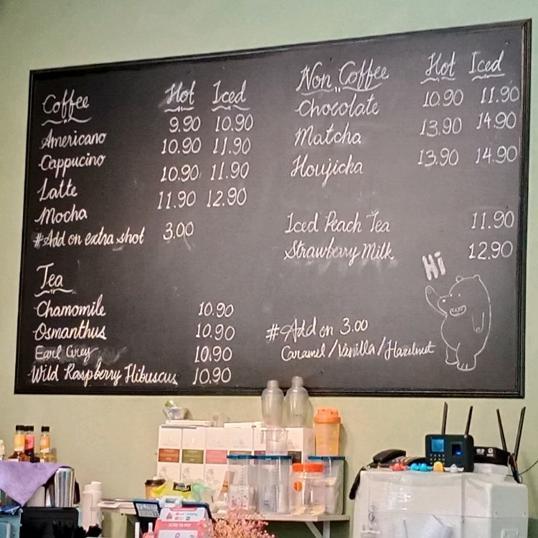 Coffee Hot Iced
Americano 9.90 10.90
Cappucino 10.90 11.90
Latte 10.90 11.90
Mocha 11.90 12.90
#Add on extra shot 3.00
Tea
Chamomile 10.90
Osmanthus 10.90
Earl Grey 10.90
Wild Raspberry Hibuscus 10.90
Non Coffee Hot Iced
Chocolate 10.90 11.90
Matcha 13.90 14.90
Houjicha 13.90 14.90
Iced Peach Tea 11.90
Strawberry Milk 12.90
Hi
#Add on 3.00
Caramel/Vanilla/Hazelnut